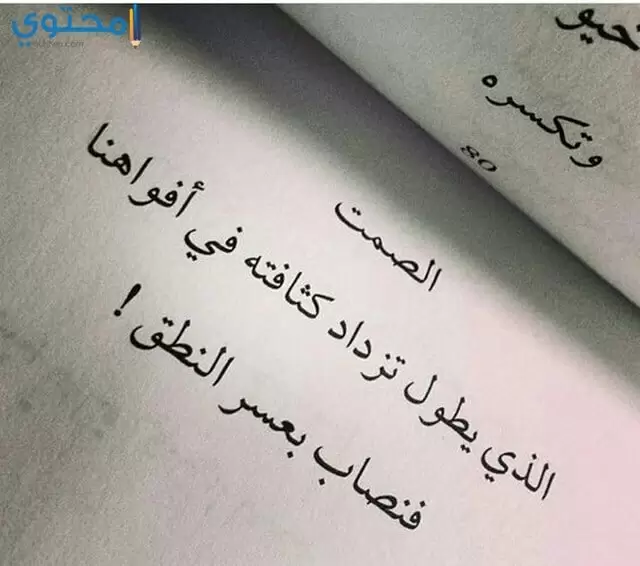 محتوي
وتكسره
80
الصمت
الذي يطول تزداد كثافته في أفواهنا
فنصاب بعسر النطق !